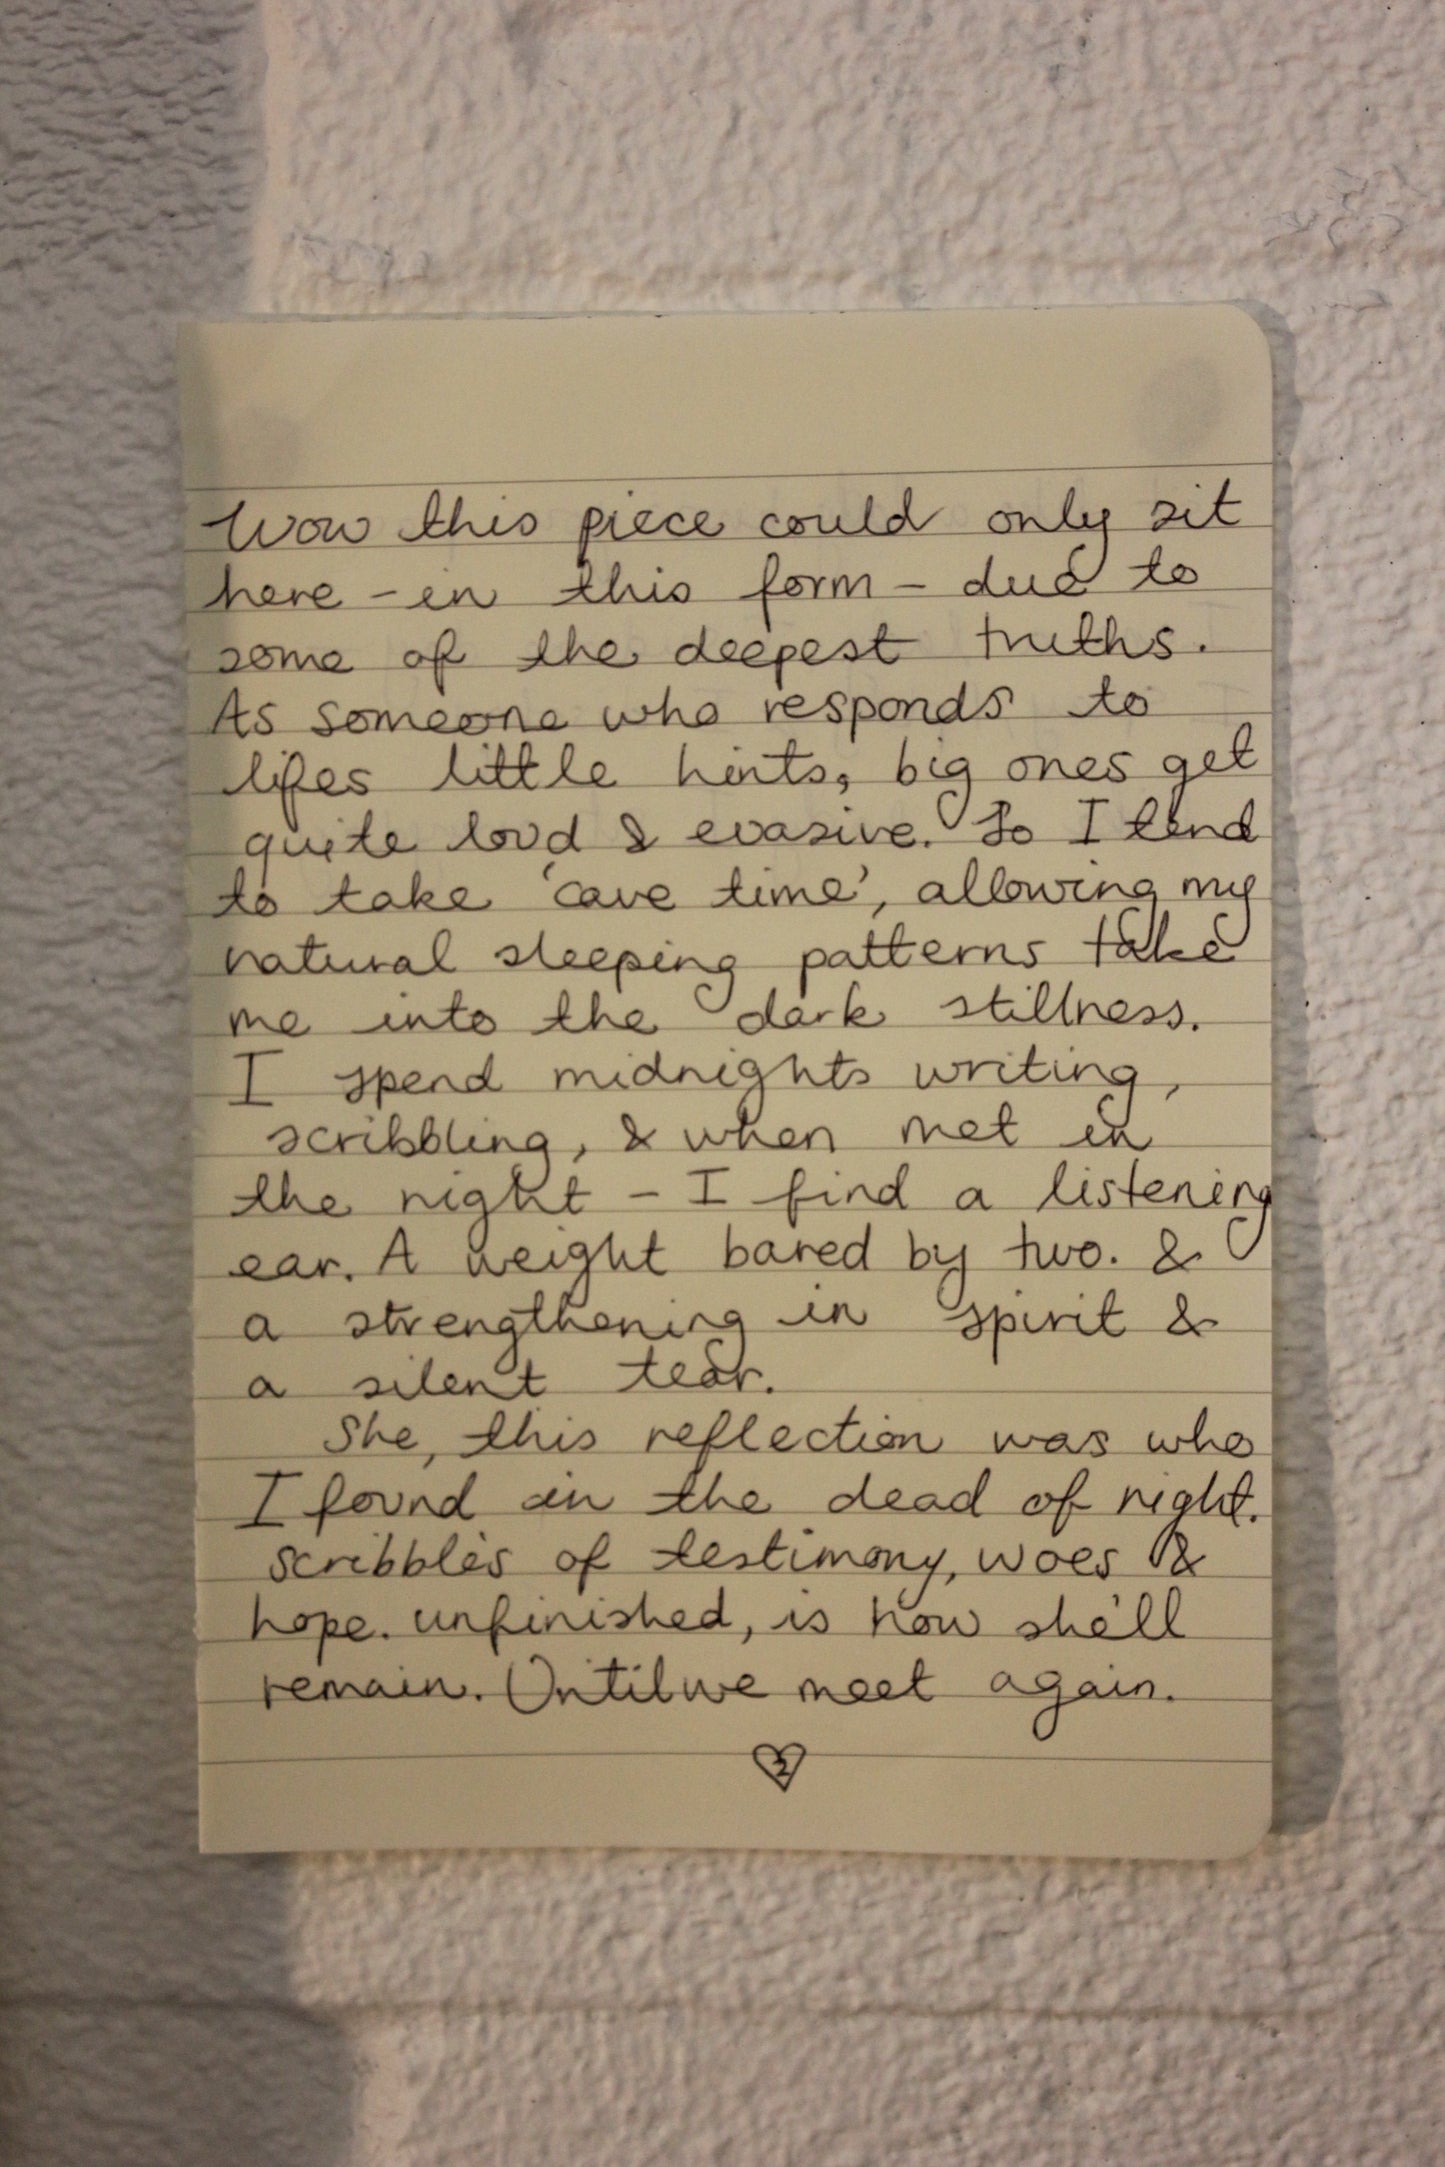 Wow this piece could only sit
here - in this form - due to
some of the deepest truths.
As someone who responds to
lifes little hints, big ones get
quite loud & evasive. So I tend
to take 'cave time', allowing my
natural sleeping patterns take
me into the dark stillness.
I spend midnights writing,
scribbling, & when met in
the night - I find a listening
ear. A weight bared by two. &
a strengthening in spirit &
a silent tear.
She, this reflection was who
I found in the dead of night.
scribbles of testimony, woes &
hope. unfinished, is how she'll
remain. Until we meet again.